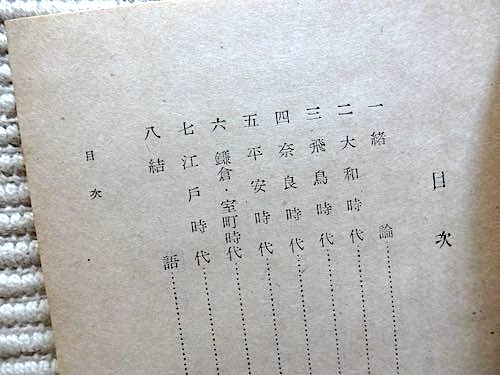 目次
一 緒論
二 大和時代
三 飛鳥時代
四 奈良時代
五 平安時代
六 鎌倉・室町時代
七 江戸時代
八 結語
目次